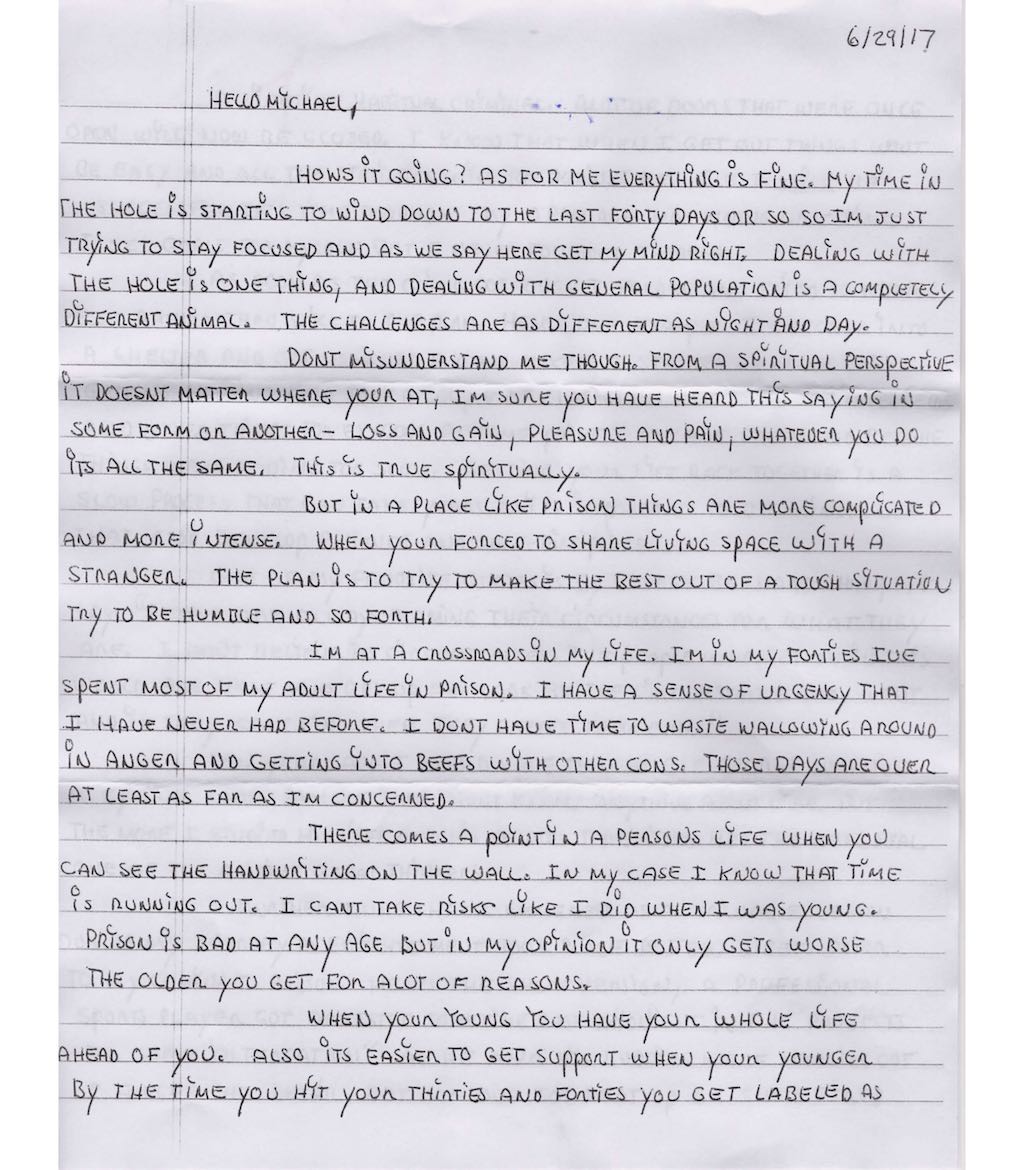 6/29/17
HELLO MICHAEL,
HOWS IT GOING? AS FOR ME EVERYTHING IS FINE. MY TIME IN
THE HOLE IS STARTING TO WIND DOWN TO THE LAST FORTY DAYS OR SO SO IM JUST
TRYING TO STAY FOCUSED AND AS WE SAY HERE GET MY MIND RIGHT. DEALING WITH
THE HOLE IS ONE THING, AND DEALING WITH GENERAL POPULATION IS A COMPLETELY
DIFFERENT ANIMAL. THE CHALLENGES ARE AS DIFFERENT AS NIGHT AND DAY.
DONT MISUNDERSTAND ME THOUGH. FROM A SPIRITUAL PERSPECTIVE
IT DOESNT MATTER WHERE YOUR AT, IM SURE YOU HAVE HEARD THIS SAYING IN
SOME FORM OR ANOTHER- LOSS AND GAIN, PLEASURE AND PAIN, WHATEVER YOU DO
ITS ALL THE SAME. THIS IS TRUE SPIRITUALLY.
BUT IN A PLACE LIKE PRISON THINGS ARE MORE COMPLICATED
AND MORE INTENSE. WHEN YOUR FORCED TO SHARE LIVING SPACE WITH A
STRANGER. THE PLAN IS TO TRY TO MAKE THE BEST OUT OF A TOUGH SITUATION
TRY TO BE HUMBLE AND SO FORTH.
IM AT A CROSSROADS IN MY LIFE. IM IN MY FORTIES IVE
SPENT MOST OF MY ADULT LIFE IN PRISON. I HAVE A SENSE OF URGENCY THAT
I HAVE NEVER HAD BEFORE. I DONT HAVE TIME TO WASTE WALLOWING AROUND
IN ANGER AND GETTING INTO BEEFS WITH OTHER CONS. THOSE DAYS ARE OVER
AT LEAST AS FAR AS IM CONCERNED.
THERE COMES A POINT IN A PERSONS LIFE WHEN YOU
CAN SEE THE HANDWRITING ON THE WALL. IN MY CASE I KNOW THAT TIME
IS RUNNING OUT. I CANT TAKE RISKS LIKE I DID WHEN I WAS YOUNG.
PRISON IS BAD AT ANY AGE BUT IN MY OPINION IT ONLY GETS WORSE
THE OLDER YOU GET FOR ALOT OF REASONS.
WHEN YOUR YOUNG YOU HAVE YOUR WHOLE LIFE
AHEAD OF YOU. ALSO ITS EASIER TO GET SUPPORT WHEN YOUR YOUNGER
BY THE TIME YOU HIT YOUR THIRTIES AND FORTIES YOU GET LABELED AS